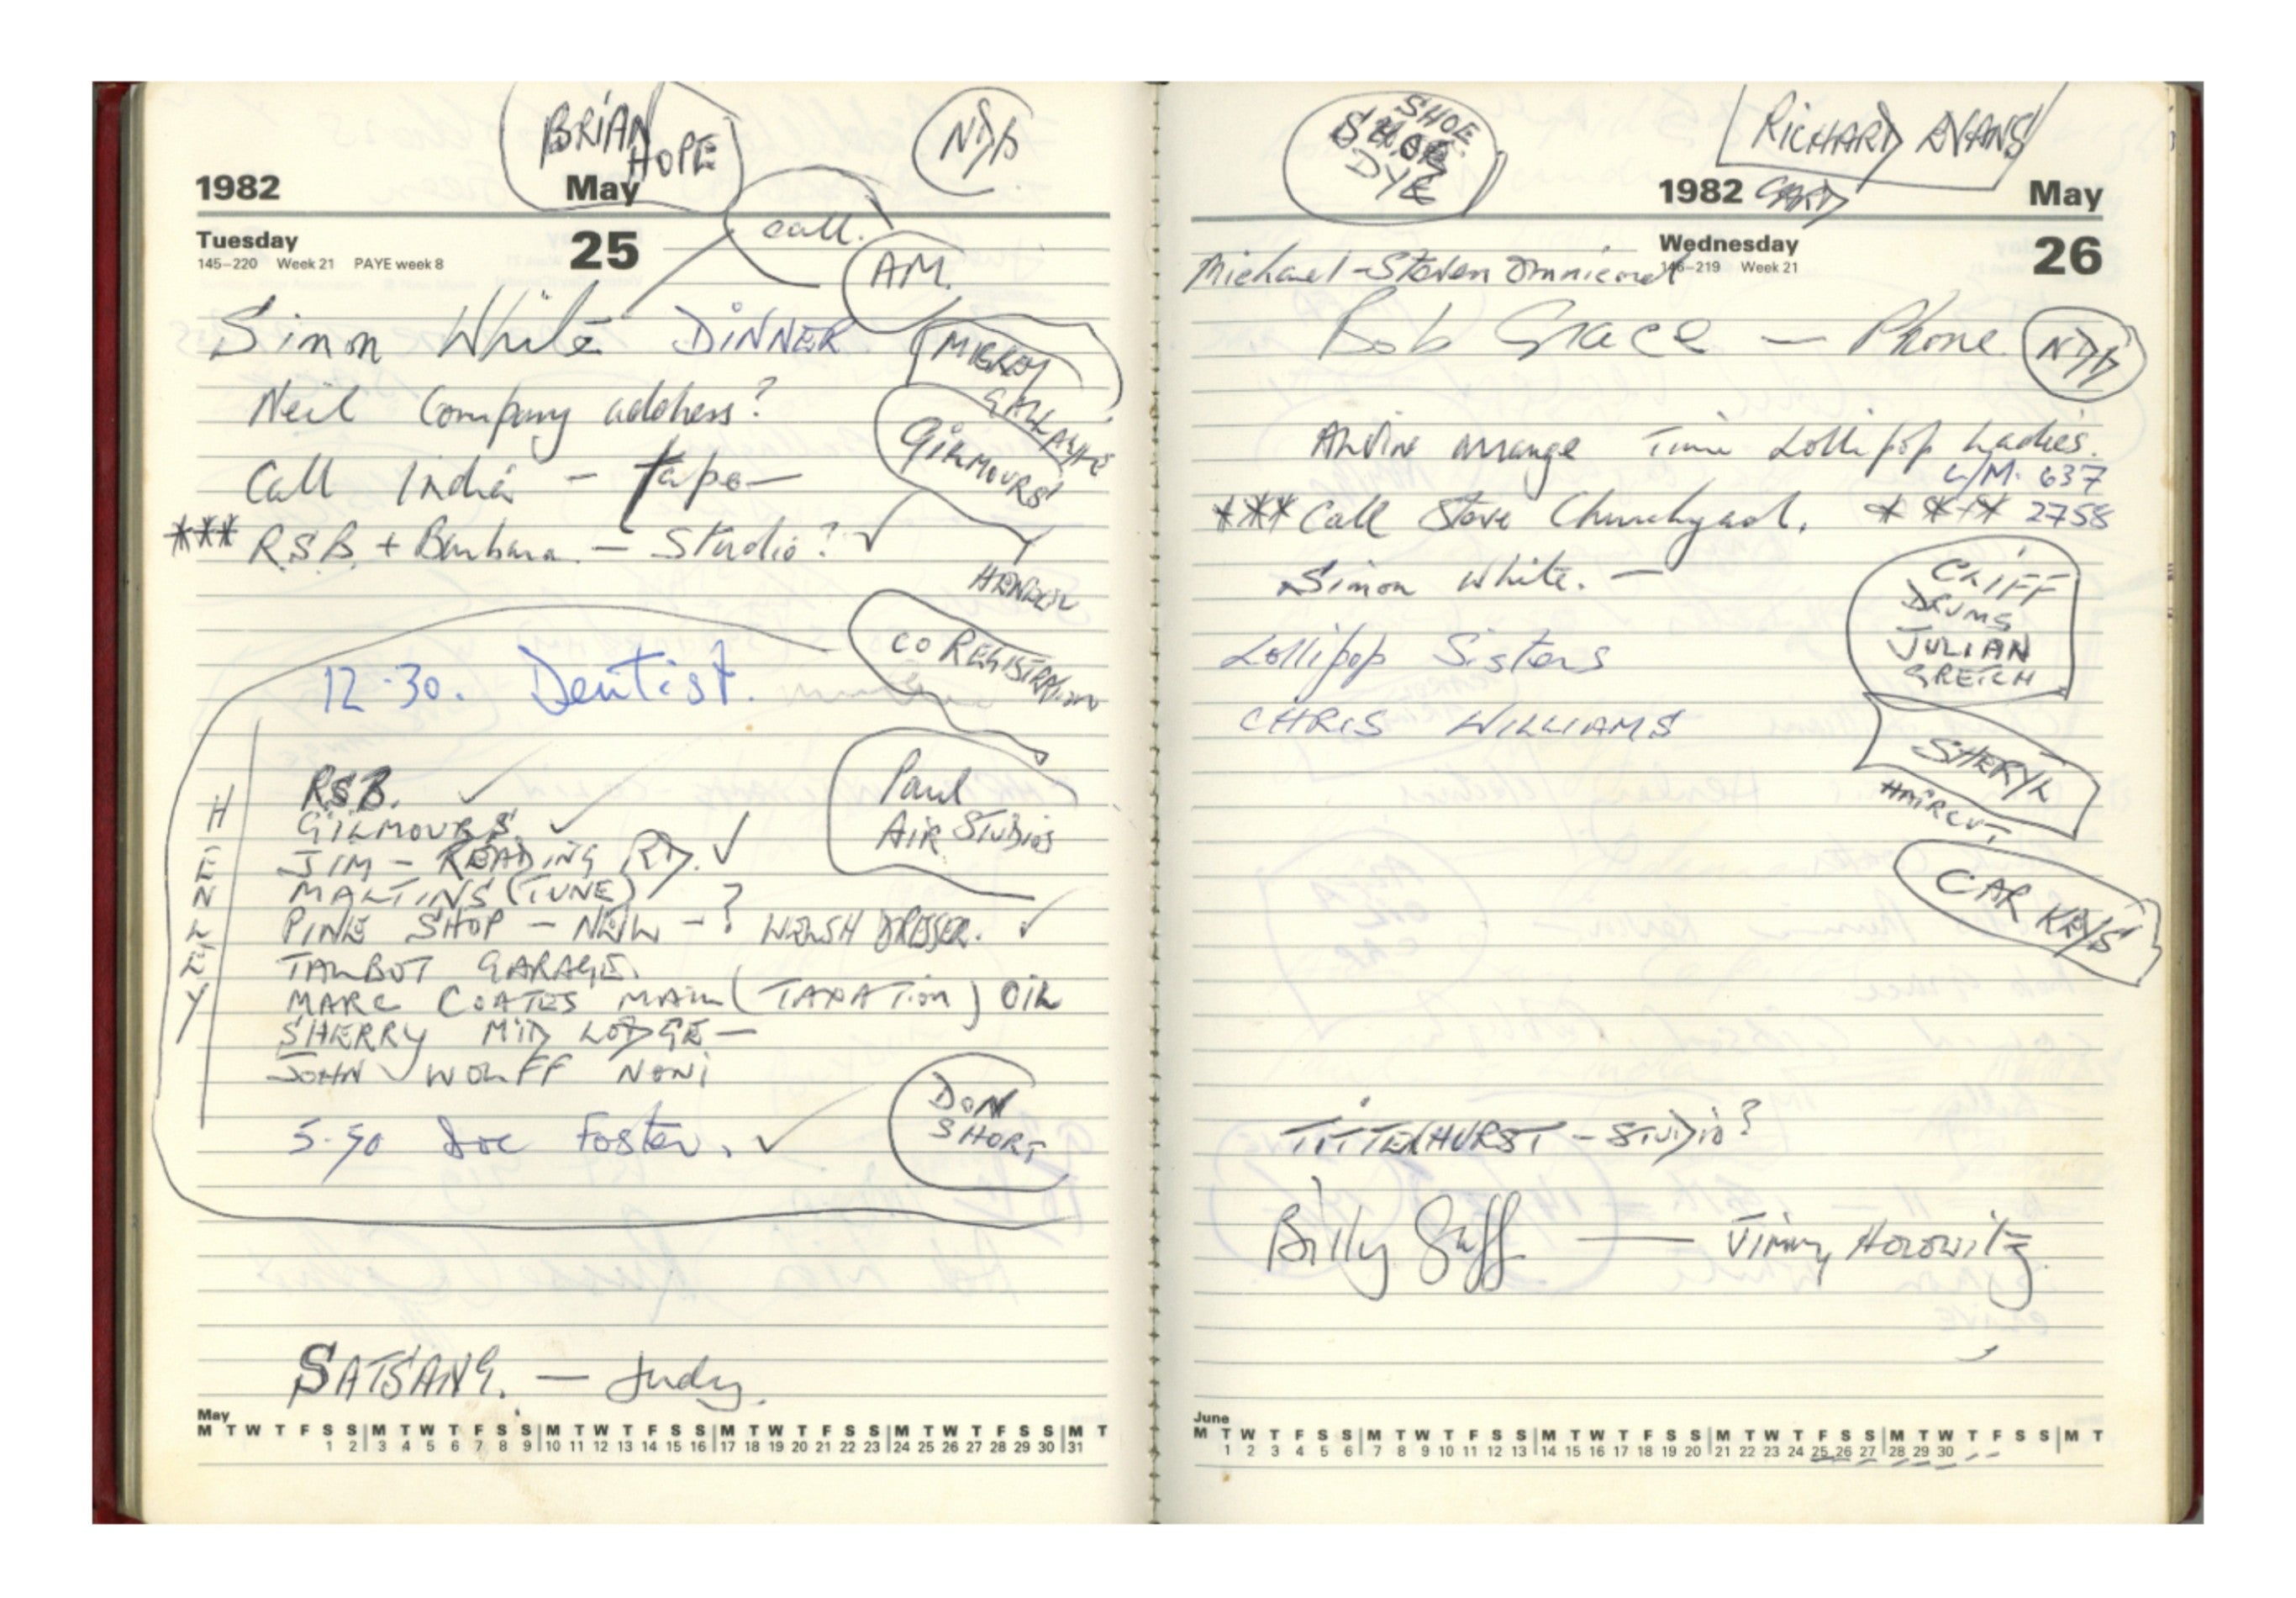 BRIAN
HOPE
1982
May
Tuesday
25
145–220 Week 21 PAYE week 8
call.
AM.
Simon White DINNER
Neil Company address?
Call India – tape –
*** R.S.B. + Barbara – Studio? ✓
MICKEY
GALLAGHER
GILMOURS
CO REGISTRATION
12.30. Dentist.
HENLEY
RSB. ✓
GILMOURS ✓
JIM – READING RD. ✓
MALTINGS (TUNE)
PINE SHOP – NEW – ? WELSH DRESSER. ✓
TALBOT GARAGE.
MARC COATES MAIN (TAXATION) OIL
SHERRY MID LODGE –
JOHN WOLFF NONI
Paul
AIR STUDIOS
5.50 Doc Foster. ✓
DON
SHORT
SATSANG. – Judy.
May
M T W T F S S M T W T F S S M T W T F S S M T W T F S S M T W T F S S M T
1 2 3 4 5 6 7 8 9 10 11 12 13 14 15 16 17 18 19 20 21 22 23 24 25 26 27 28 29 30 31
SHOE
DYE
RICHARD EVANS
1982
CARD
May
Wednesday
26
146–219 Week 21
Michael – Steven Omnichord
Bob Grace – Phone
arrange Time Lollipop Ladies.
L/M. 637
*** Call Steve Churchyard. **** 2758
Simon White. –
CLIFF
DRUMS
JULIAN
GRETCH
Lollipop Sisters
CHRIS WILLIAMS
SHERYL
HAIRCUT
CAR KEYS
TITTENHURST – STUDIO?
Billy Gaff — Jimmy Horowitz
June
M T W T F S S M T W T F S S M T W T F S S M T W T F S S M T W T F S S M T
1 2 3 4 5 6 7 8 9 10 11 12 13 14 15 16 17 18 19 20 21 22 23 24 25 26 27 28 29 30